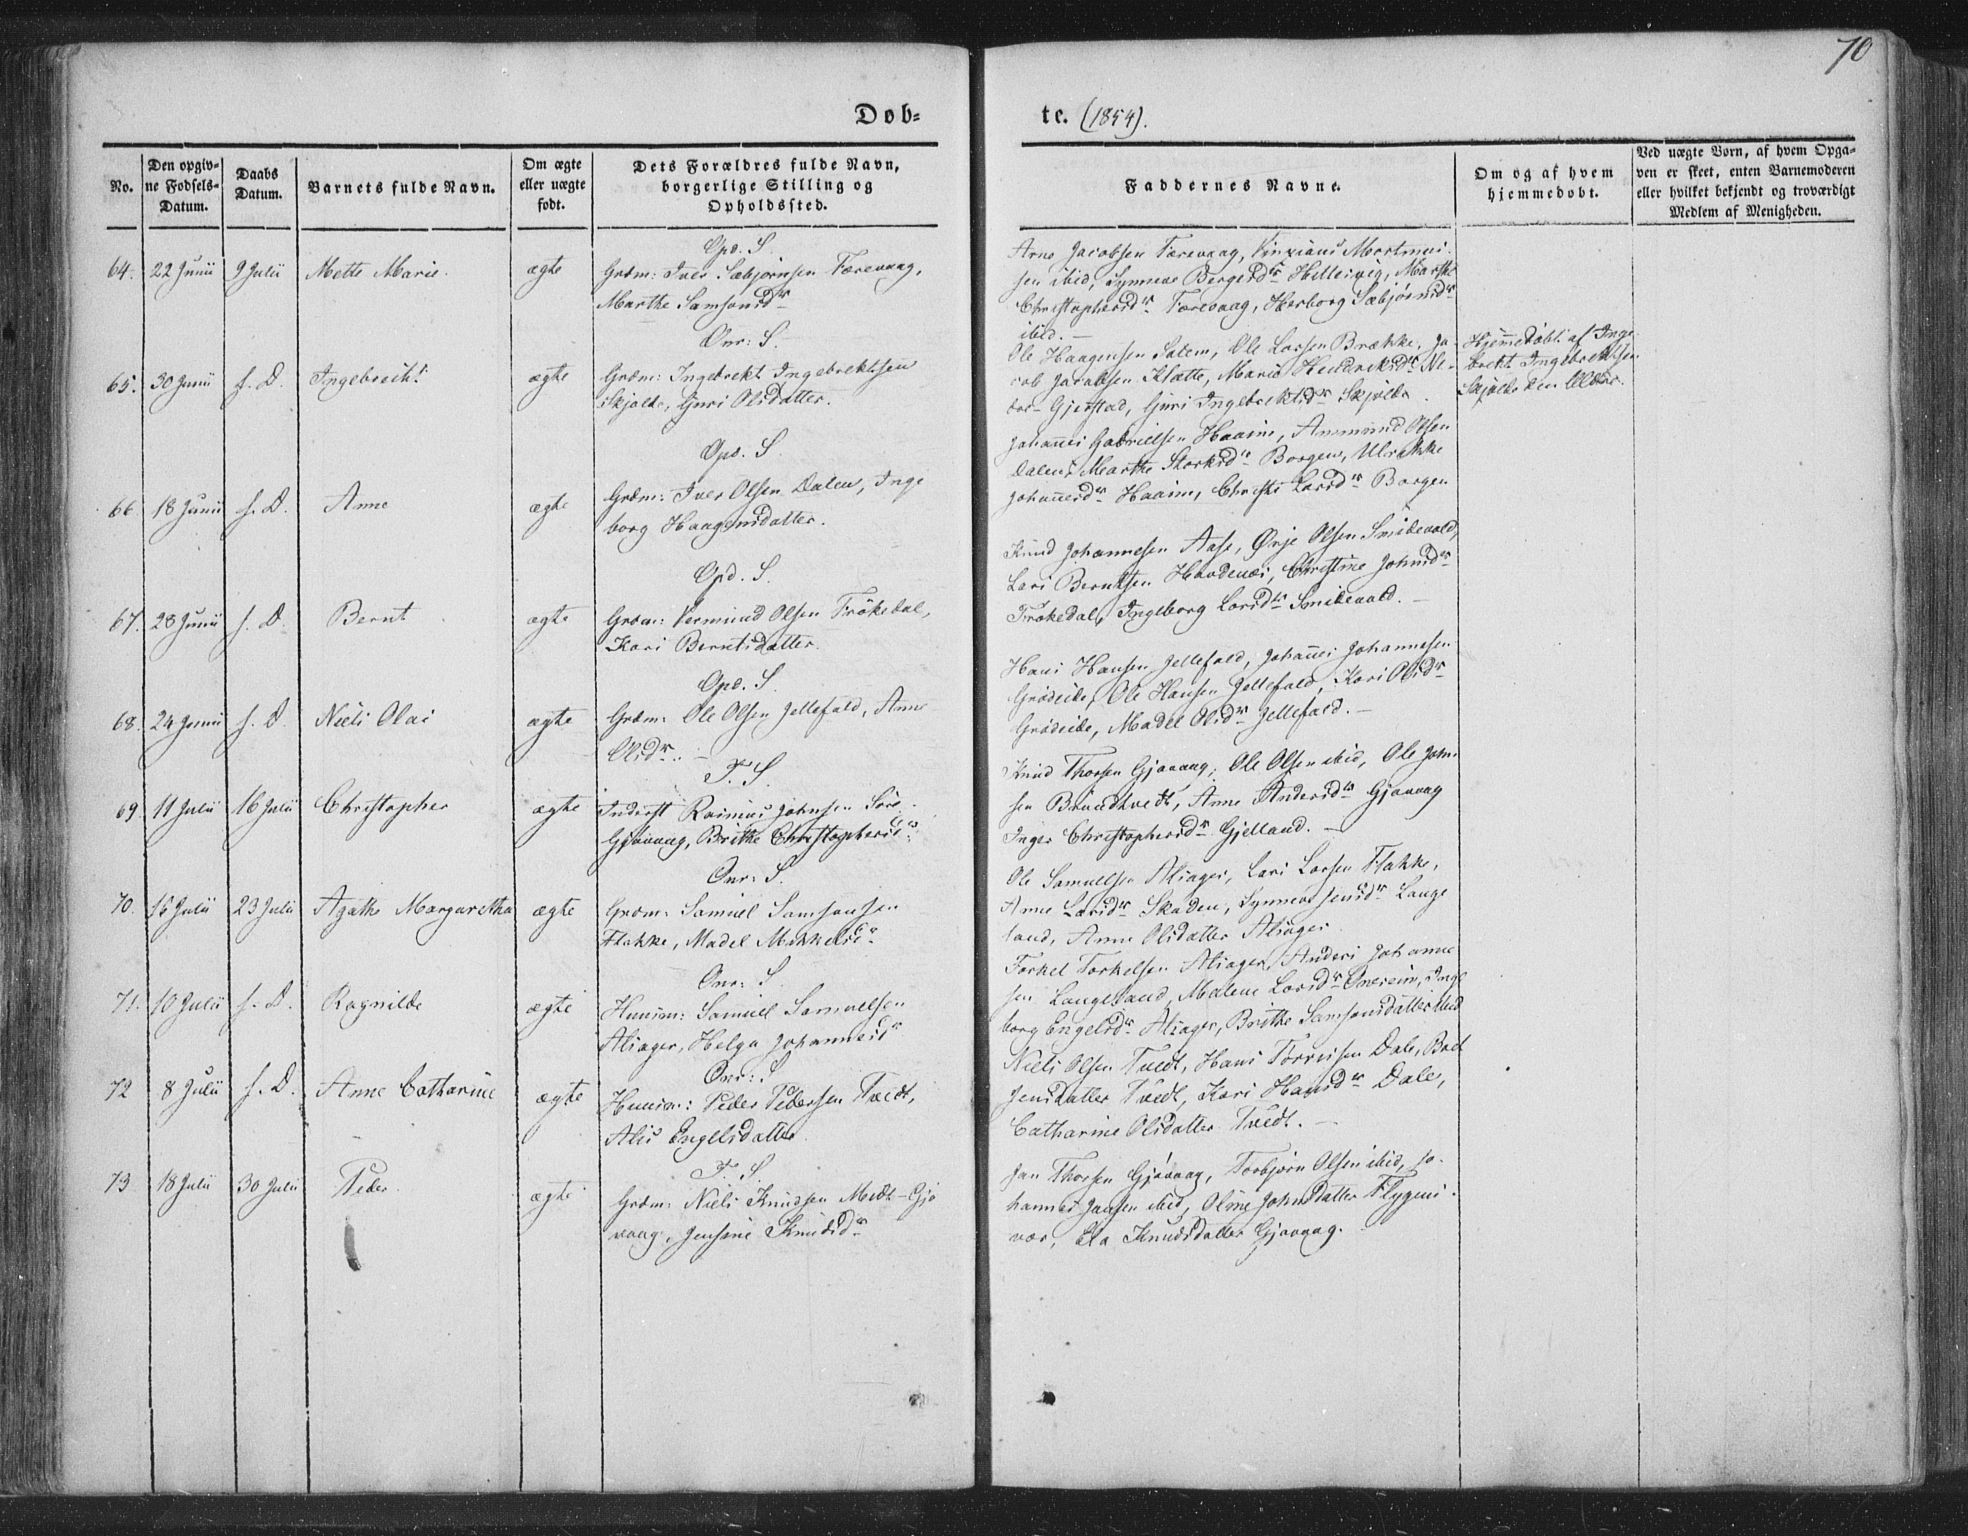 70
Døb=
te. (1854).
No.
Den opgiv-
ne Fødsels-
Datum.
Daabs
Datum.
Barnets fulde Navn.
Om ægte
eller uægte
født.
Dets Forældres fulde Navn,
borgerlige Stilling og
Opholdssted.
Faddernes Navne.
Om og af hvem
hjemmedøbt.
Ved uægte Børn, af hvem Opga-
ven er skeet, enten Barnemoderen
eller hvilket bekjendt og troværdigt
Medlem af Menigheden.
Opd. S.
64. 22 Junii 9 Julii Mette Marie. ægte Grdm: Iver Sæbjørnsen Færevaag,
Marthe Samsonsdr
Arne Jacobsen Færevaag, Mortinus-
sen ibid, Synneve Bergesdr Hillesveg, Marthe
Christophersdr Færevaag, Herborg Sæbjørnsdr
ibid. —
Ønr: S.
65. 30 Junii s. D. Ingebreckt. ægte Grdm: Ingebrekt Ingebrektsen
Skjolde, Guri Olsdatter.
Ole Haagensen Salem, Ole Larsen Brække, Ja-
cob Jacobsen Klætte, Maria Hendriksdr Ne-
dre Gjerstad, Guri Ingebrektsdr Skjolde.
Hjemmedøbt af Inge-
brekt Ingebrektsen
Skjolde den
Opd. S.
66. 18 Junii s. D. Anne ægte Grdm: Iver Olsen Dalen, Inge
borg Haagensdatter.
Johannes Gabrielsen Haaim, Ammund Olsen
Dalen, Marthe Storksdr Borgen, Ulrikke
Johannesdr Haaim, Christi Larsdr Borgen
Opd. S.
67. 28 Junii s. D. Bernt ægte Grdm: Vermund Olsen Frøkedal,
Kari Berntsdatter.
Knud Johannesen Aase, Ørje Olsen Smidevold,
Lars Berntsen Havdenæs, Christine Johnsdr
Frøkedal, Ingeborg Larsdr Smidevold. —
Opd. S.
68. 24 Junii s. D. Niels Olai ægte Grdm: Ole Olsen Jellefald, Anne
Olsdr. —
Hans Hansen Jellefald, Johannes Johannesen
Grødeide, Ole Hansen Jellefald, Kari Olsdr
Grødeide, Madel Olsdr Jellefald. —
F. S.
69 11 Julii 16 Julii Christopher ægte Inderst Rasmus Johnsen Søre
Gjøvaag, Brithe Christophersdr
Knud Thorsen Gjøvaag, Ole Olsen ibid, Ole John-
sen Brundtvedt, Anne Andersdr Gjøvaag
Inger Christophersdr Gjelland. —
Ønr: S.
70. 16 Julii 23 Julii Agathe Margaretha ægte Grdm: Samuel Samsonsen
Flakke, Madel Mikkelsdr
Ole Samuelsen Aliager, Lars Larsen Flakke,
Anne Larsdr Skaden, Synneve Jensdr Lange
land, Anne Olsdatter Aliager.
Ønr: S.
71. 10 Julii s. D. Ragnilde ægte Huusm: Samuel Samuelsen
Aliager, Helga Johannesdr
Torkel Torkelsen Aliager, Anders Johanne
sen Langeland, Malene Larsdr Ønereim, Inge
borg Engelsdr Aliager, Brithe Samsonsdatter ibid
Ønr: S.
72 8 Julii s. D. Anne Catharine ægte Huusm: Peder Pedersen Tvedt,
Alis Engelsdatter.
Niels Olsen Tvedt, Hans Torrisen Dale,
Jensdatter Tvedt, Kari Hansdr Dale,
Catharine Olsdatter Tvedt. —
F. S.
73 18 Julii 30 Julii Peder. ægte Grdm: Niels Knudsen Midt-Gjø
vaag, Jensine Knudsdr
Jan Thorsen Gjøvaag, Torbjørn Olsen ibid, Jo-
hannes Jansen ibid, Oline Johnsdatter Flygens-
vær, Ela Knudsdatter Gjøvaag.